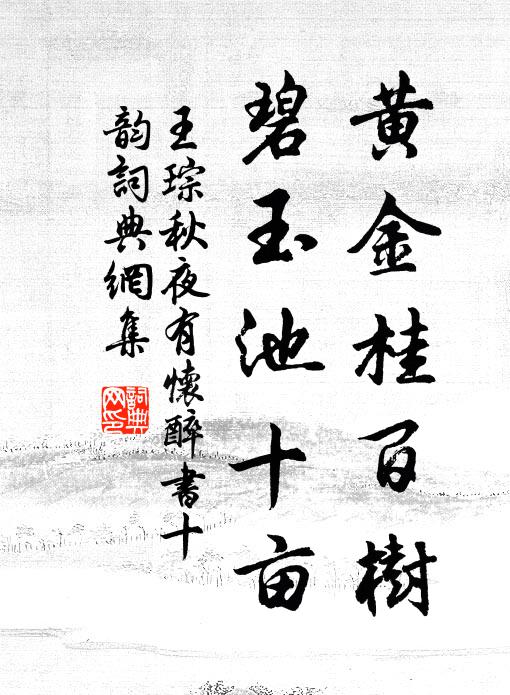 黃金桂百樹
碧玉池十亩
王琮秋夜有懷醉書十
韵詞典網集
詞典
网印